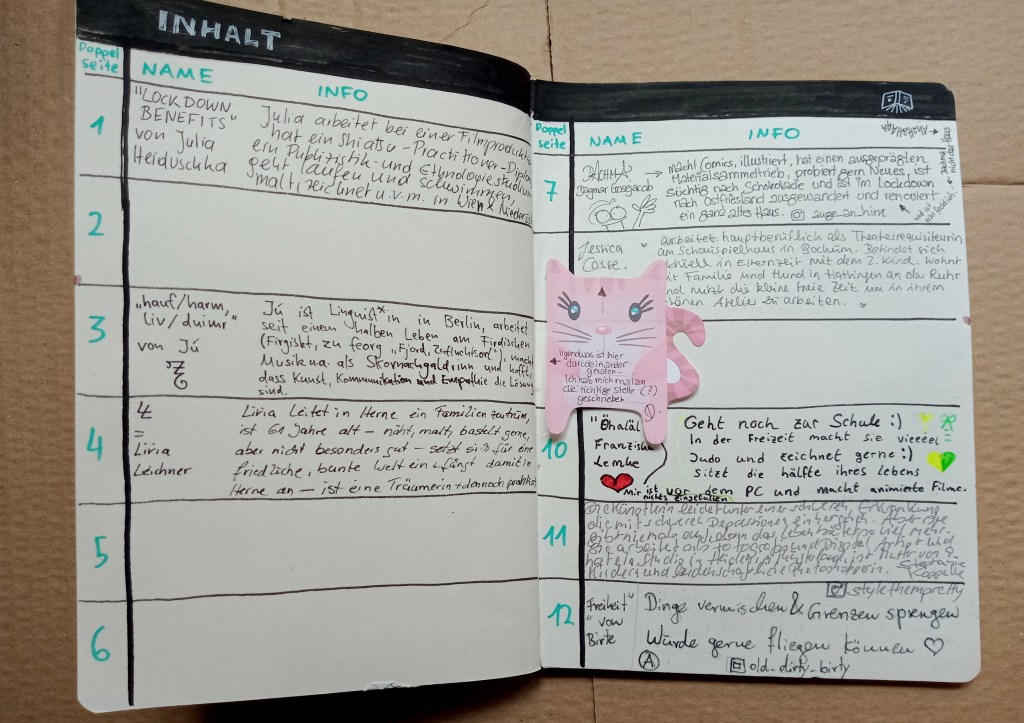 INHALT
Doppel
seite
NAME
INFO
1
"LOCKDOWN
BENEFITS"
von Julia
Heiduschka
Julia arbeitet bei einer Filmproduktion
hat ein Shiatsu-Practitioner-Diplom
ein Publizistik- und Ethnologiestudium
geht laufen und schwimmen,
malt, zeichnet u.v.m. in Wien &
2
3
"hauf/harm,
liv/duimr"
von Jú
Jú ist Linguist*in in Berlin, arbeitet
seit einem halben Leben am Firdischen
(Firgiskt, zu feorg "Fjord, Zufluchtsort"), macht
Musik u.a. als Skornachgaldrinn und hofft,
dass Kunst, Kommunikation und Empathie die Lösung
sind.
4
=
Liria
Leichner
Liria leitet in Herne ein Familienzentrum,
ist 61 Jahre alt - näht, malt, bastelt gerne,
aber nicht besonders gut - setzt sich für eine
friedliche, bunte Welt ein + fängt damit in
Herne an - ist eine Träumerin + dennoch
5
6
Doppel
seite
NAME
INFO
7
Dagmar Gosejacob
macht Comics, illustriert, hat einen ausgeprägten
Materialsammeltrieb, probiert gern Neues, ist
süchtig nach Schokolade und ist im Lockdown
nach Ostfriesland ausgewandert und renoviert
ein ganz altes Haus. auge_an_hirn
Jessica
Cosse.
" arbeitet hauptberuflich als Theaterrequisiteurin
am Schauspielhaus in Bochum. Befindet sich
in Elternzeit mit dem 2. Kind. Wohnt
mit Familie und Hund in Hattingen an der Ruhr
und nutzt die kleine freie Zeit um in ihrem
schönen Atelier zu arbeiten. "
irgendwas ist hier
durcheinander
geraten -
Ich hab mich mal an
die richtige Stelle (?)
geschrieben
10
Franziska
Lemke
Geht noch zur Schule :)
In der Freizeit macht sie vieeeel
Judo und zeichnet gerne :)
Sitzt die hälfte ihres Lebens
vor dem PC und macht animierte Filme.
Mir ist
nichts eingefallen
11
Die Künstlerin leidet unter einer schweren Erkrankung
die mit schweren Depressionen einhergehen. Aber sie
gibt niemals auf, denn das Leben hat
Sie arbeitet als Fotografin und Digital Artist und
hat ein Studio in
Kindern und leidenschaftliche Photographin. Stephanie
stylethempretty
12
"Freiheit"
von
Birte
Dinge vermischen & Grenzen sprengen
Würde gerne fliegen können ♡
A
old_dirty_birty